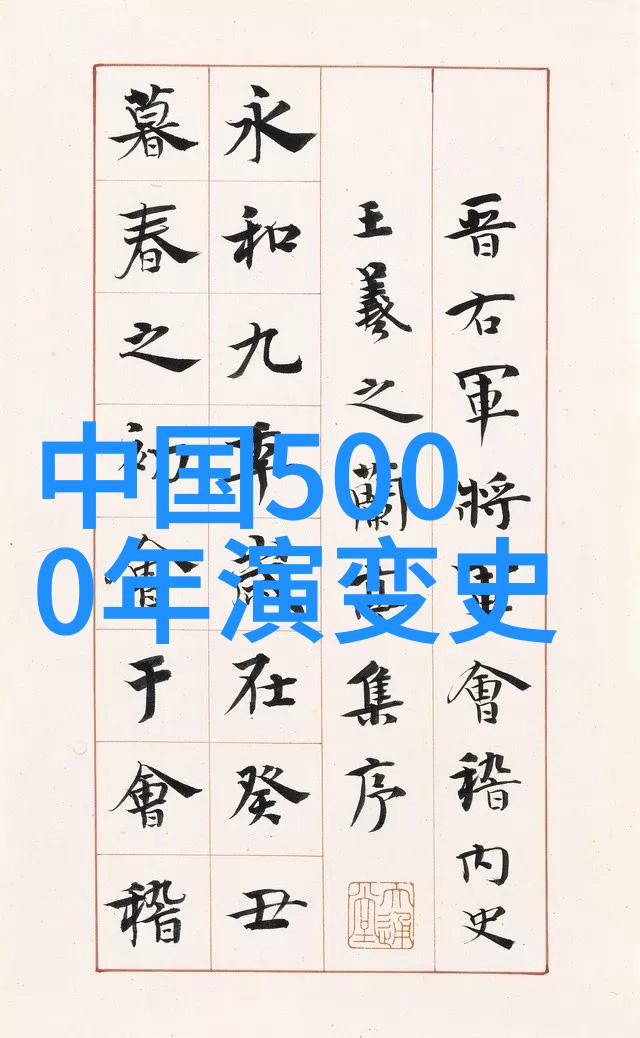 晋右軍將軍會稽内史
王羲之蘭亭集序
永和九年歲在癸丑
暮春之初會于會稽
中国500
0年演变史